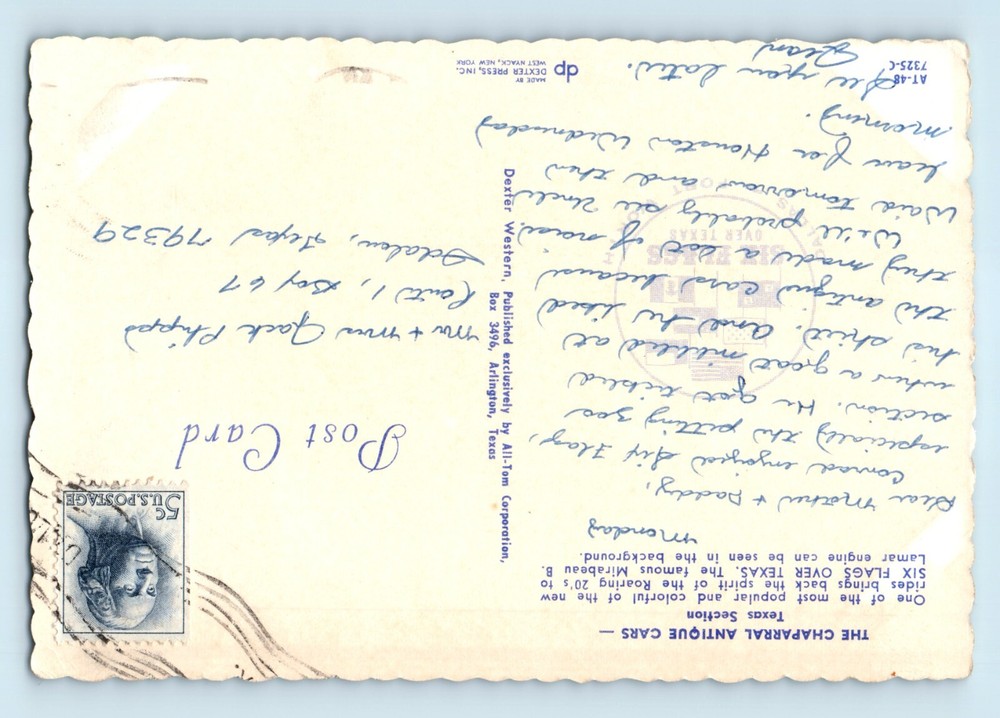 THE CHAPARRAL ANTIQUE CARS —
Texas Section
One of the most popular and colorful of the new
rides brings back the spirit of the Roaring 20's to
SIX FLAGS OVER TEXAS. The famous Mirabeau B.
Lamar engine can be seen in the background.
Monday
Dear Mother + Daddy,
Conrad enjoyed Six Flags,
especially the petting zoo
section. He got tickled
when a goat nibbled at
his shirt. And he liked
the antique cars because
they made a lot of noise.
We'll probably see Uncle
Waid tomorrow and then
leave for Houston Wednesday
morning.
See you later.
Jean
AT-48
7325-C
MADE BY
dp DEXTER PRESS, INC.
WEST NYACK, NEW YORK
Dexter Western, Published exclusively by All-Tom Corporation,
Box 3496, Arlington, Texas
SIX FLAGS
OVER TEXAS
DALLAS FORT WORTH
5c
U.S. POSTAGE
Post Card
Mr + Mrs Jack Phipps
Route 1, Box 67
Idalou, Texas 79329